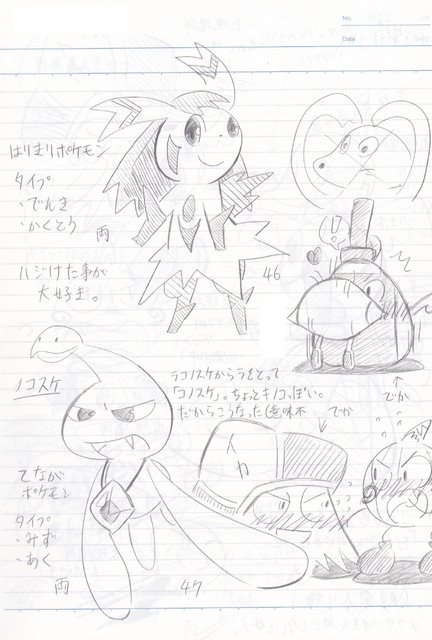 No.
Date
はりきりポケモン
タイプ
・でんき
・かくとう
両
ハジけた事が
大好き。
46
!?
ノコスケ
ラコノスケからラをとって
「コノスケ」。ちょっとキノコっぽい。
だからこうなった(意味不
でか
でか
イカ
てなが
ポケモン
タイプ
・みず
・あく
両
47